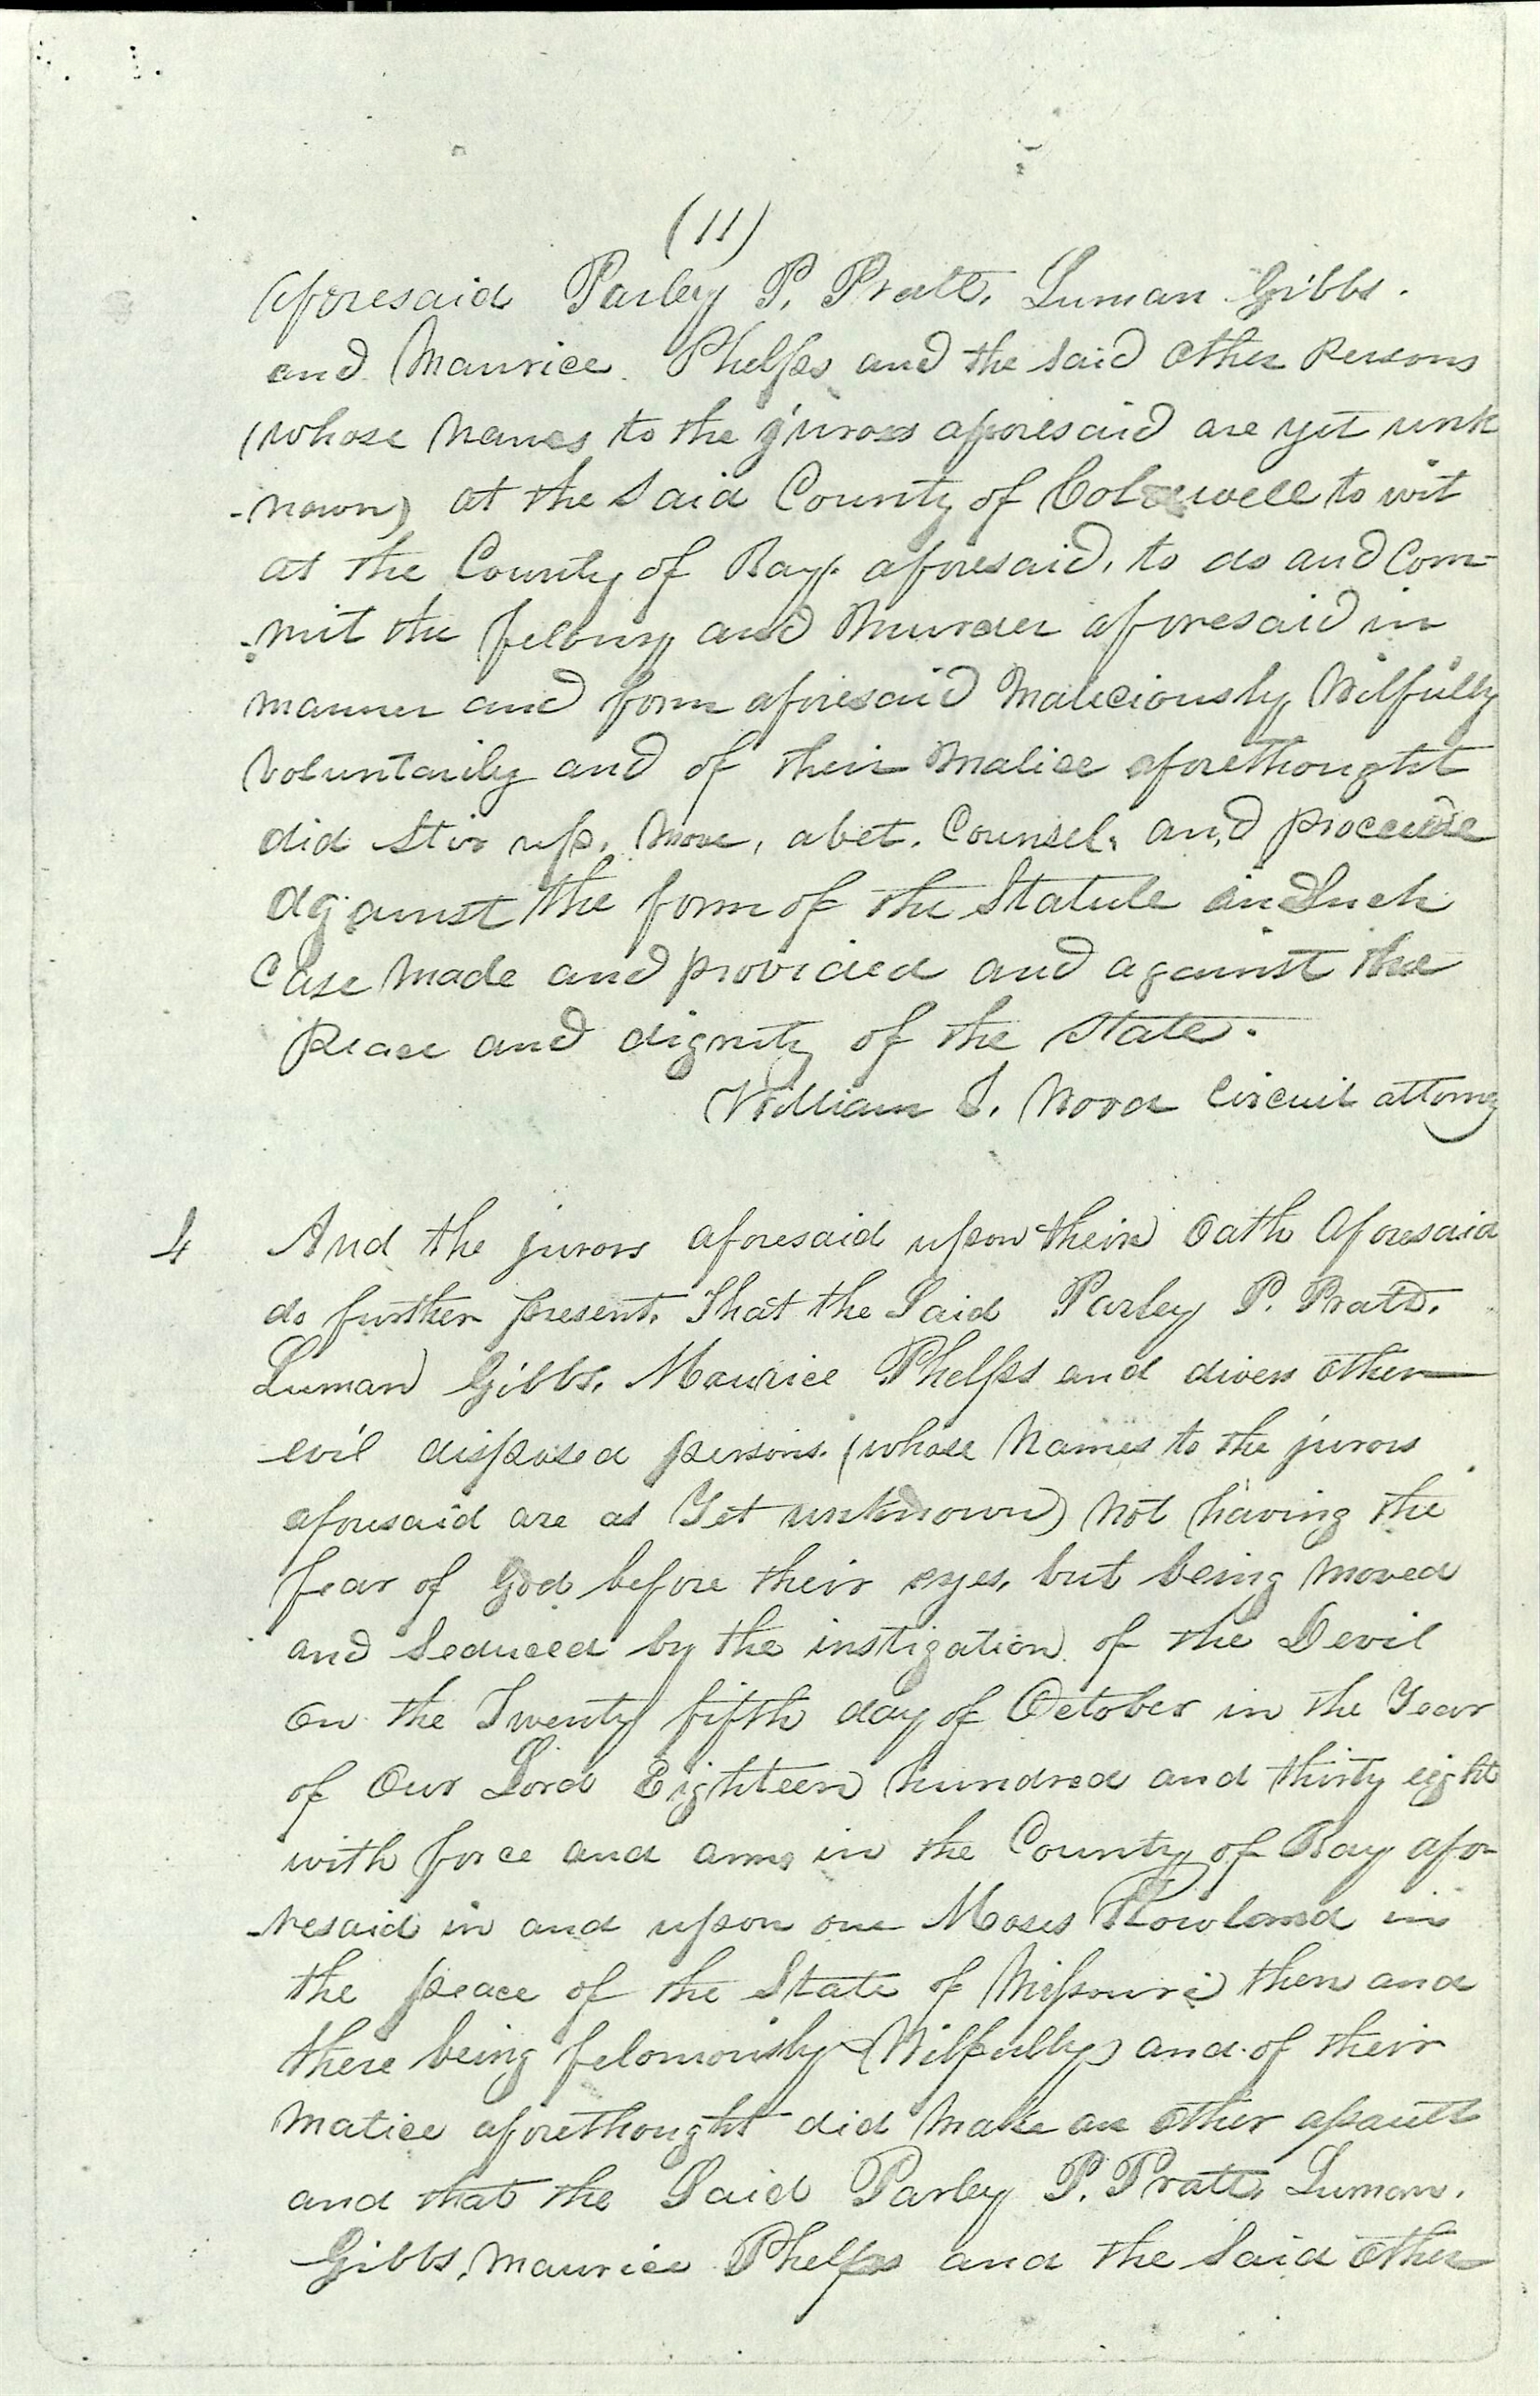 (11)
aforesaid Parley P. Pratt, Luman Gibbs.
and Maurice Phelps and the said other Persons
(whose names to the jurors aforesaid are yet unk
-nown) at the said County of Coldwell to wit
at the County of Ray. aforesaid, to do and Com-
-mit the felony and Murder aforesaid in
manner and form aforesaid Maliciously, Wilfully
Voluntarily and of their Malice aforethought
did Stir up, Move, abet, Counsel, and procure
against the form of the Statute in Such
Case Made and provided and against the
Peace and dignity of the State.
William T. Wood Circuit attorney
4 And the jurors aforesaid upon their Oath Aforesaid
do further present, That the Said Parley P. Pratt,
Luman Gibbs, Maurice Phelps and divers other
evil disposed persons. (whose Names to the jurors
aforesaid are as Yet unknown) Not having the
fear of God before their eyes, but being moved
and Seduced by the instigation of the Devil
on the Twenty fifth day of October in the Year
of Our Lord Eighteen hundred and thirty eight
with force and arms in the County of Ray afo-
-resaid in and upon one Moses Rowland in
the peace of the State of Missouri then and
there being feloniously Wilfully and of their
Malice aforethought did Make an other assault
and that the Said Parley P. Pratt, Luman.
Gibbs, Maurice Phelps and the Said Other